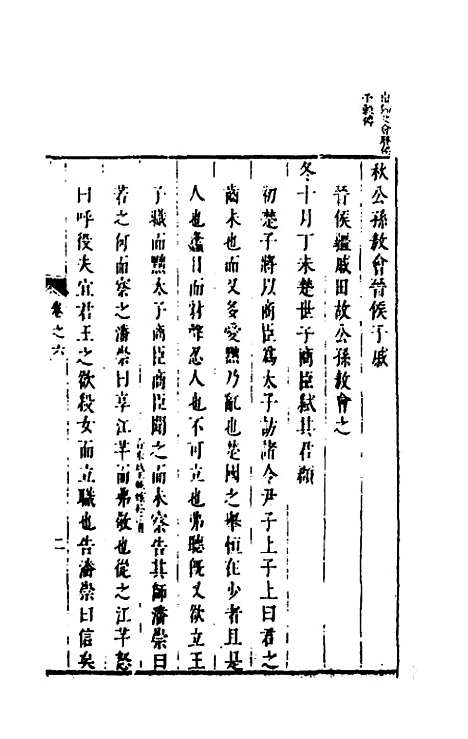 秋公孫敖會晉侯于戚
晉侯疆戚田故公孫敖會之
冬十月丁未楚世子商臣弑其君頵
初楚子將以商臣爲太子訪諸令尹子上子上曰君之
齒未也而又多愛黜乃亂也楚國之舉恒在少者且是
人也蠭目而豺聲忍人也不可立也弗聽旣又欲立王
子職而黜太子商臣商臣聞之而未察告其師潘崇曰
若之何而察之潘崇曰享江芊而弗敬也從之江芊怒
曰呼役夫宜君王之欲殺女而立職也告潘崇曰信矣
卷之六
二